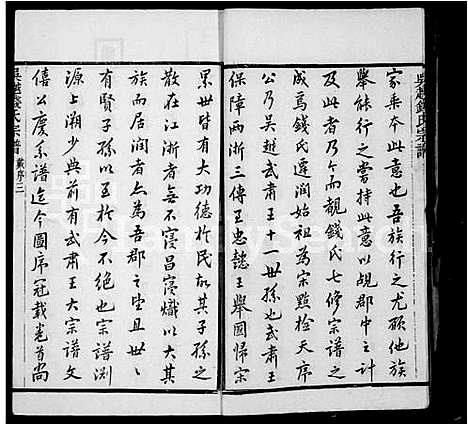 吳越錢氏宗譜
家乗本此意也吾族行之尤願他族
舉能行之嘗持此意以覘郡中之計
及此者乃今而覩錢氏七修宗譜之
成焉錢氏遷润始祖為宗點檢天序
公乃吳越武肅王十一世孫也武肅王
保障两浙三傳王忠懿王舉國帰宋
累世皆有大功德於民故其子孫之
散在江浙者無不寖昌寖熾以大其
族而居润者尤為吾郡之望且世世
有賢子孫以至於今不绝也宗譜渊
源上溯少典前有武肅王大宗譜文
僖公慶系譜迄今圖序冠載卷首尚
吳越錢氏宗譜
戴序三